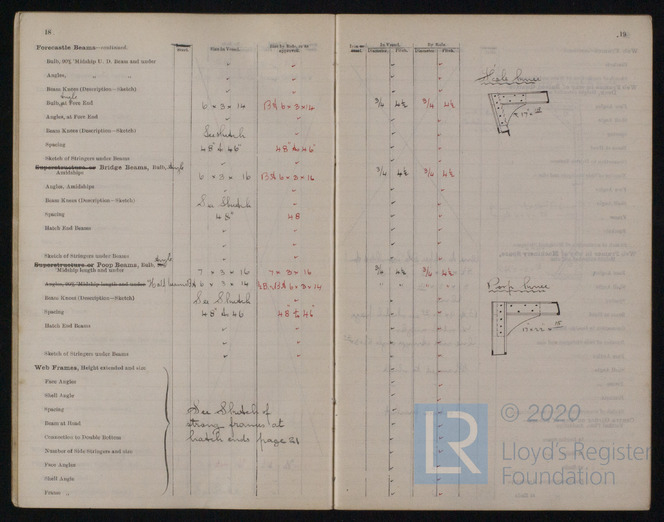 18
Forecastle Beams—continued.
Size in Vessel.
Size by Rule, or as approved.
Bulb, 90% 'Midship U. D. Beam and under
Angles, " "
Beam Knees (Description—Sketch)
angle
Bulb, at Fore End 6 × 3 × 14 BA 6 × 3 × 14
Angles, at Fore End
Beam Knees (Description—Sketch) See Sketch
Spacing 48" to 46" 48" to 46"
Sketch of Stringers under Beams
Superstructure or Bridge Beams, Bulb, Angle
Amidships 6 × 3 × 16 BA 6 × 3 × 16
Angles, Amidships
Beam Knees (Description—Sketch) See Sketch
Spacing 48" 48
Hatch End Beams
Sketch of Stringers under Beams
Superstructure or Poop Beams, Bulb, Angle
'Midship length and under 7 × 3 × 16 7 × 3 × 16
Angles, 90% 'Midship length and under 6 × 3 × 14 6 × 3 × 14
Beam Knees (Description—Sketch) See Sketch
Spacing 48" to 46 48" to 46"
Hatch End Beams
Sketch of Stringers under Beams
Web Frames, Height extended and size
Face Angles
Shell Angle
Spacing See Sketch of
Beam at Head strong frames at
Connection to Double Bottom hatch ends page 21
Number of Side Stringers and size
Face Angles
Shell Angle
Frame "
19
In Vessel. By Rule.
Diameter. Pitch. Diameter. Pitch.
Hole Knee
3/4 4½ 3/4 4½
3/4 4½ 3/4 4½
4½ 4½
" " " "
Poop Knee
LR
© 2020
Lloyd's Register
Foundation